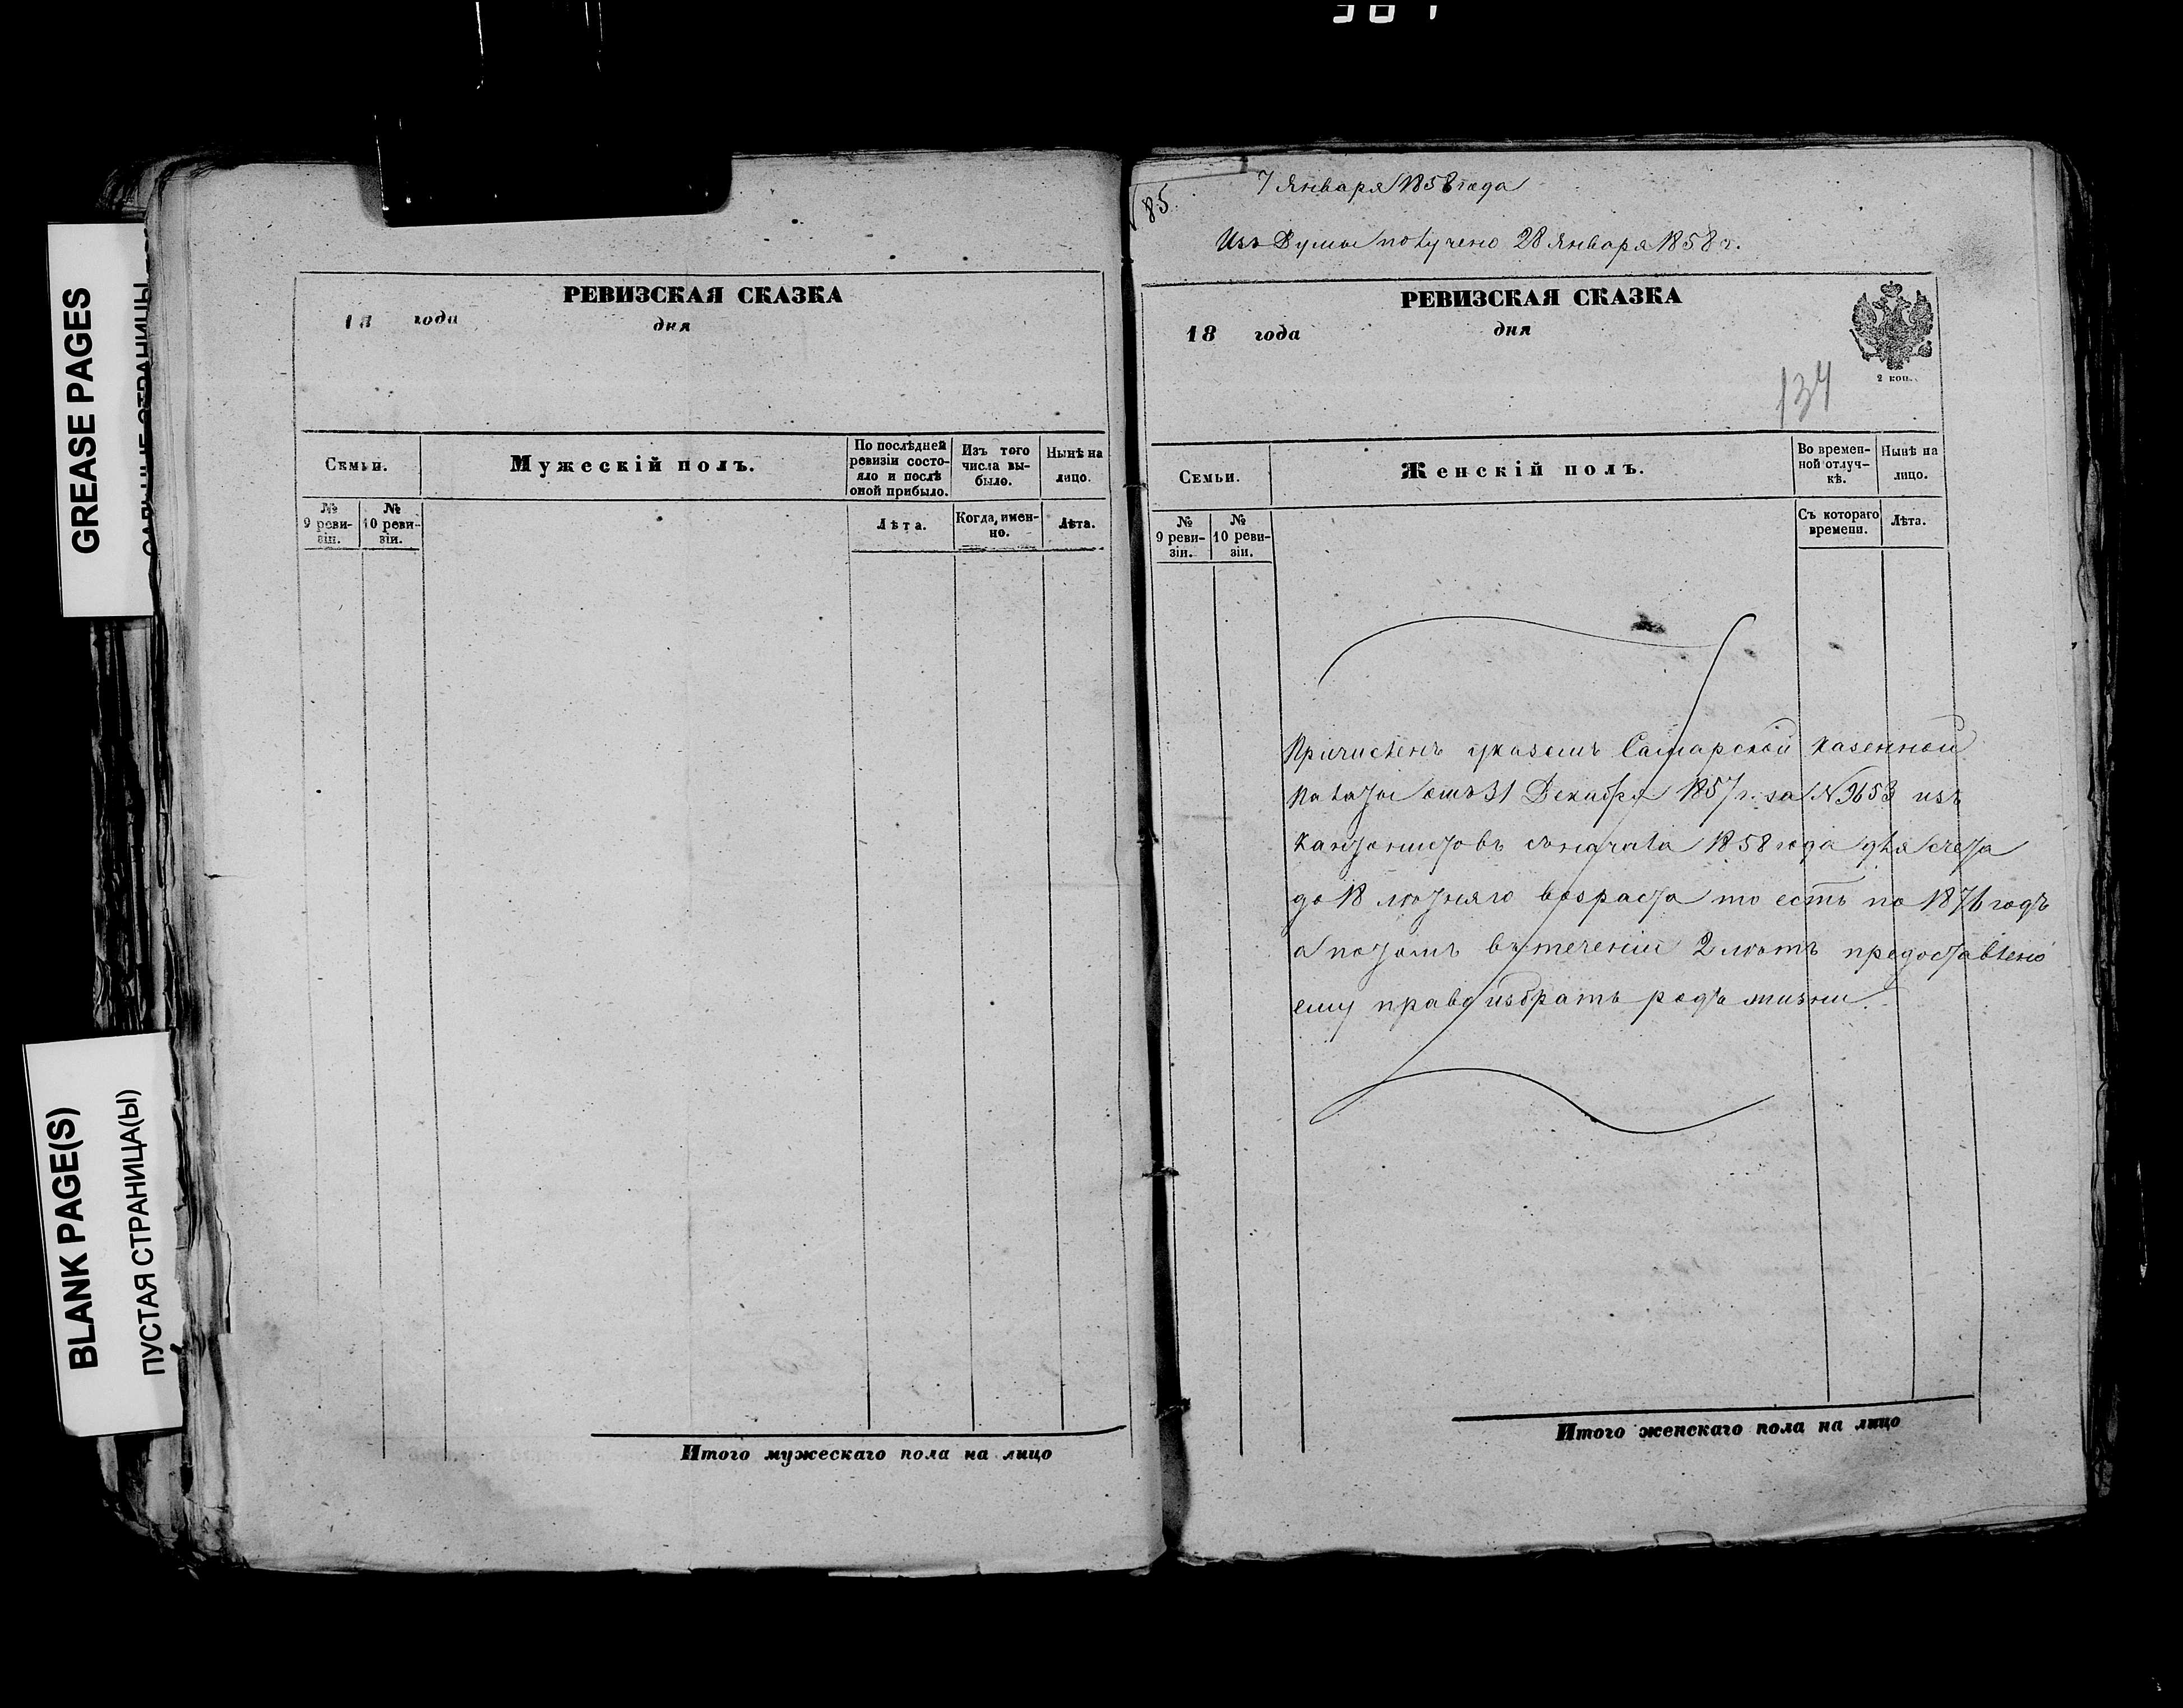 GREASE PAGES
BLANK PAGE(S)
ПУСТАЯ СТРАНИЦА(Ы)
РЕВИЗСКАЯ СКАЗКА
18 года дня
Семьи.
Мужескій полъ.
По послѣдней ревизіи состояло и послѣ оной прибыло.
Изъ того числа выбыло.
Нынѣ на лицо.
№ 9 ревизіи.
№ 10 ревизіи.
Лѣта.
Когда именно.
Лѣта.
Итого мужескаго пола на лицо
85
7 Января 1858 года
Изъ Думы получено 28 Января 1858 г.
РЕВИЗСКАЯ СКАЗКА
18 года дня
2 коп.
134
Семьи.
Женскій полъ.
Во временной отлучкѣ.
Нынѣ на лицо.
№ 9 ревизіи.
№ 10 ревизіи.
Съ котораго времени.
Лѣта.
Причисленъ указомъ Самарской Казенной
Палаты отъ 31 Декабря 1857 г. за № 9653 изъ
Кантонистовъ съ начала 1858 года для счета
до 18 лѣтняго возраста то есть по 1876 годъ
а потомъ въ теченіи 2 лѣтъ предоставлено
ему право избрать родъ жизни.
Итого женскаго пола на лицо